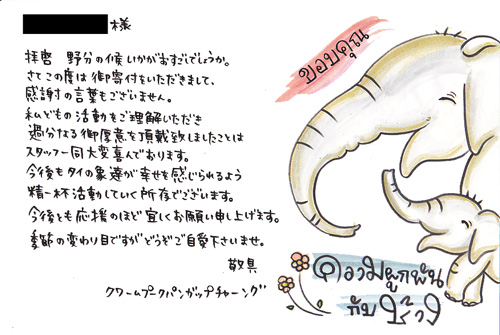 様
拝啓 野分の候いかがおすごでしょうか。
さてこの度は御寄付をいただきまして、
感謝の言葉もございません。
私どもの活動をご理解いただき
過分なる御厚意を頂戴致しましたことは
スタッフ一同大変喜んでおります。
今後もタイの象達が幸せを感じられるよう
精一杯活動していく所存でございます。
今後とも応援のほど宜しくお願い申し上げます。
季節の変わり目ですがどうぞご自愛下さいませ。
敬具
クワームプークパンガップチャーング
ขอบคุณ
ความผูกพัน
กับช้าง